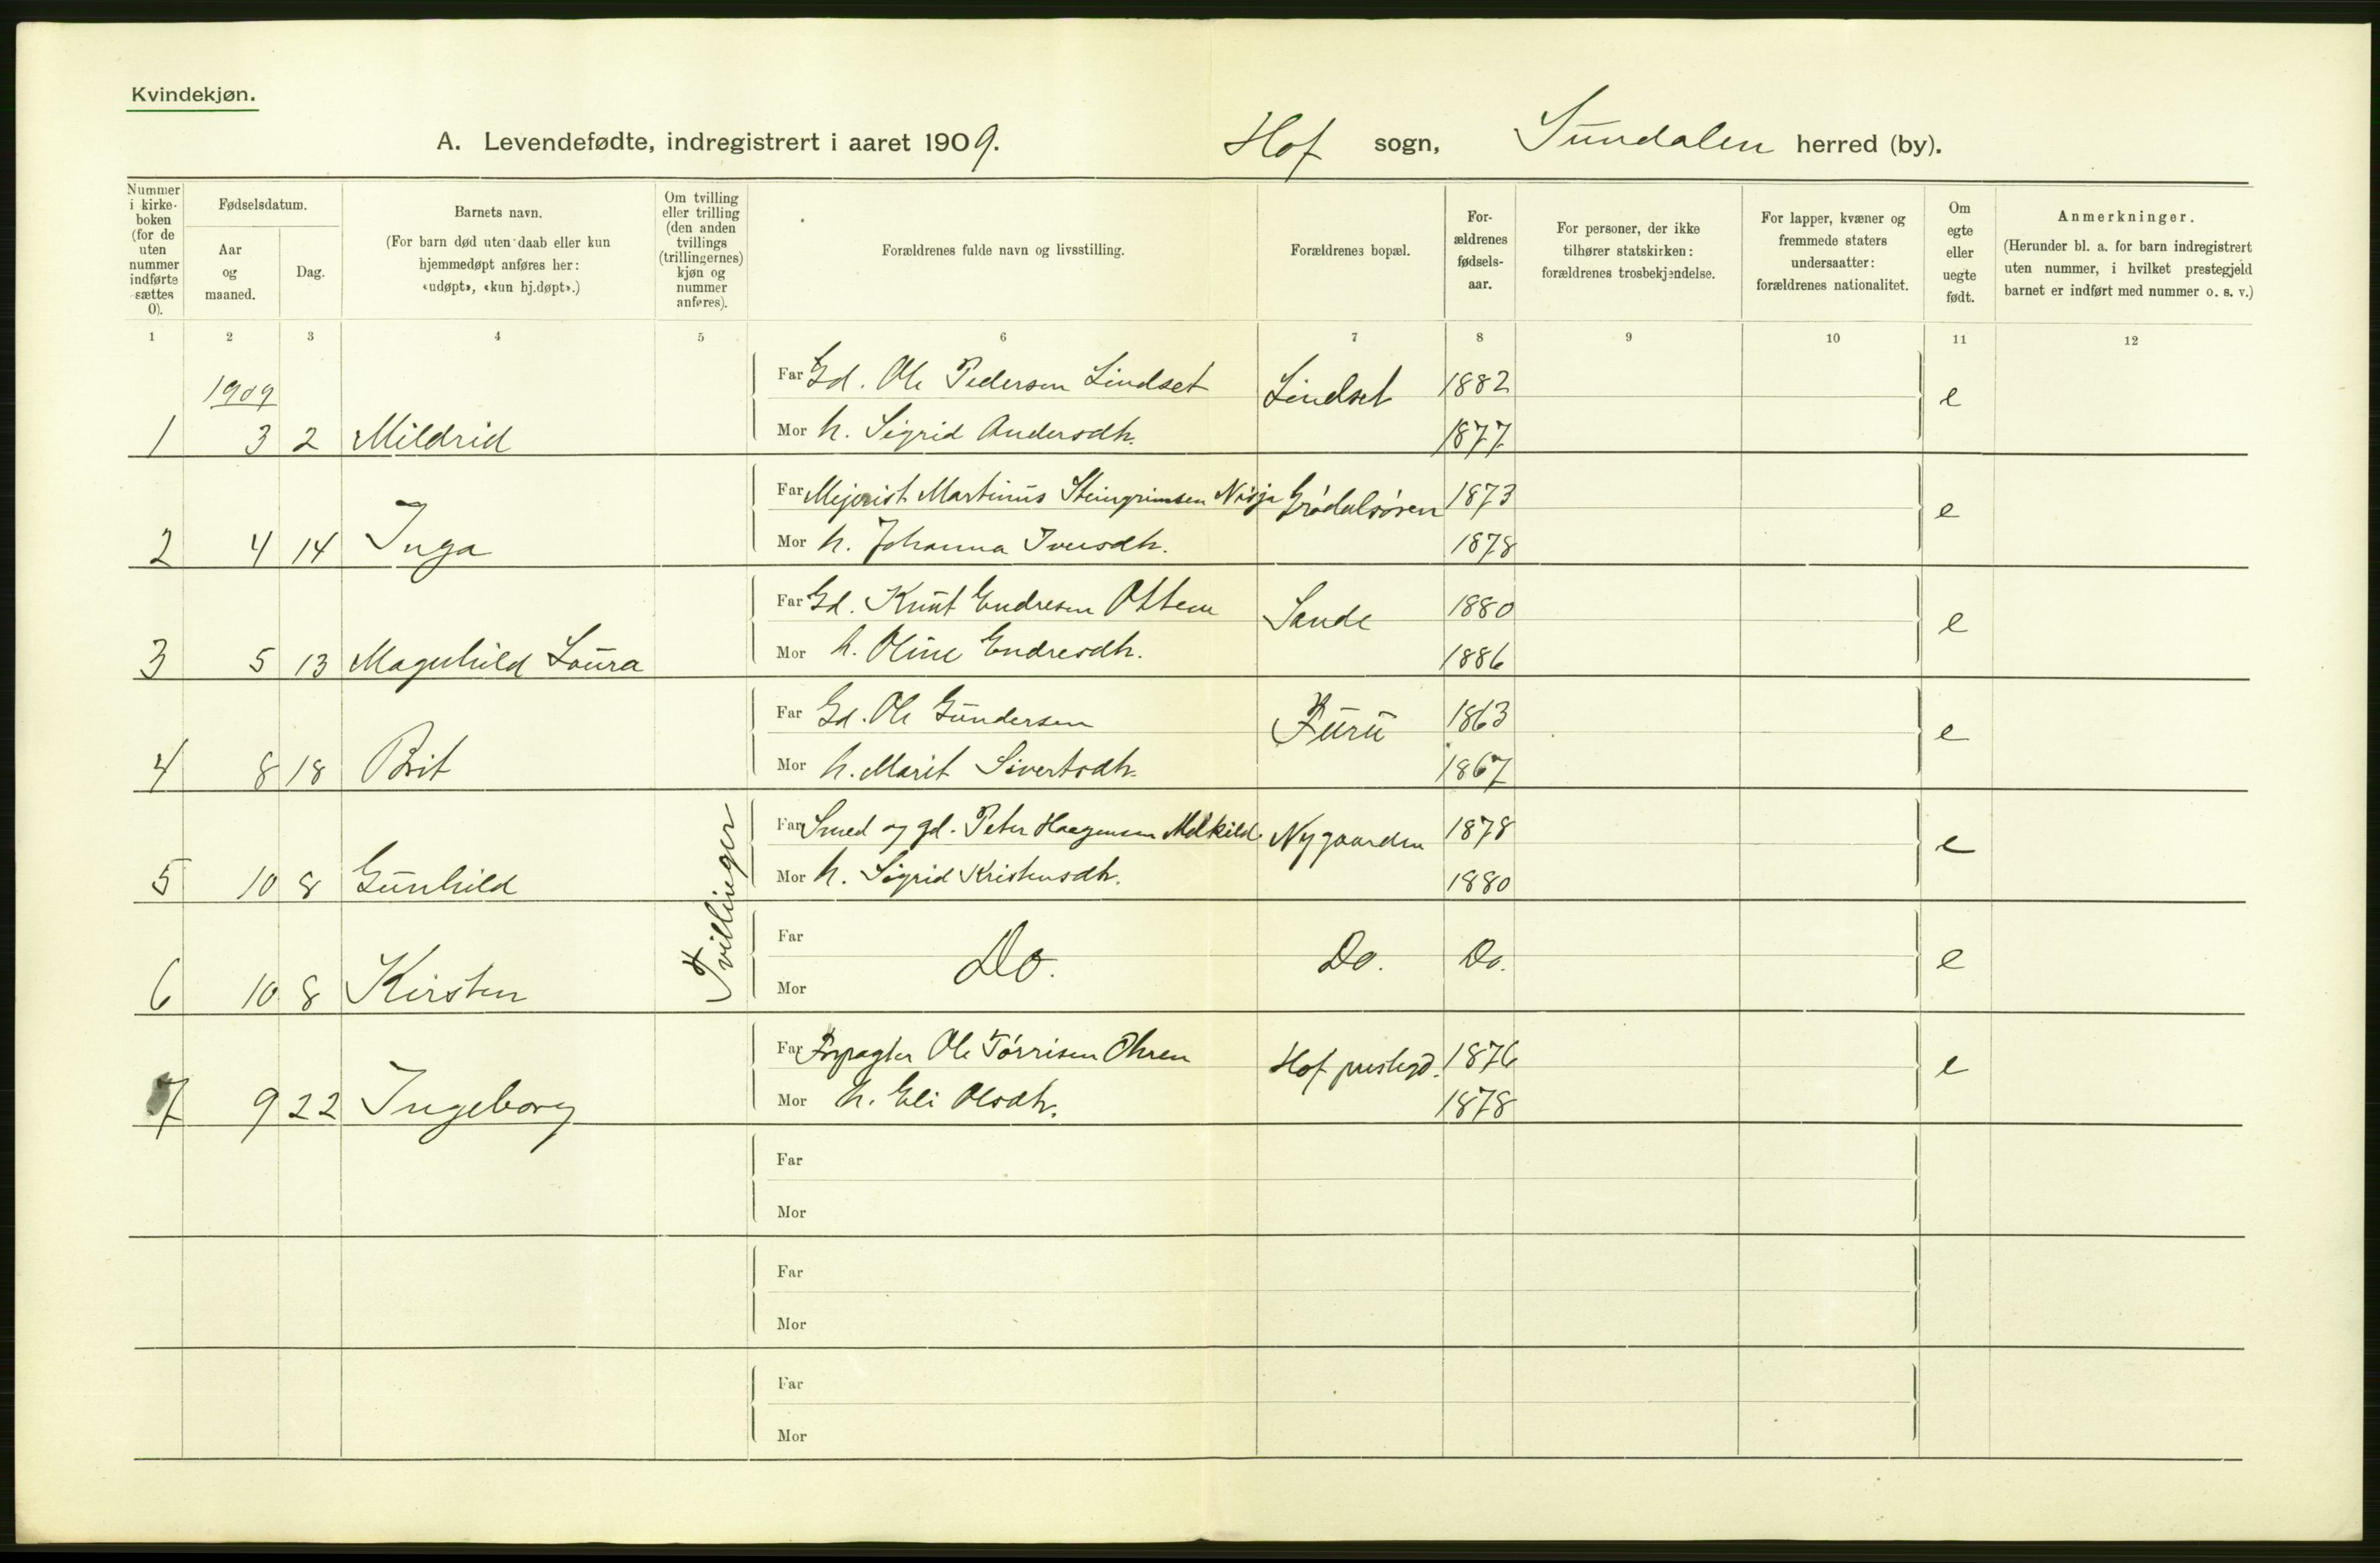 Kvindekjøn.
A. Levendefødte, indregistrert i aaret 1909. Hof sogn, Sundalen herred (by).
Nummer i kirke-boken (for de uten nummer indførte sættes 0).
Fødselsdatum.
Aar og maaned.
Dag.
Barnets navn.
(For barn død uten daab eller kun hjemmedøpt anføres her: «udøpt», «kun hj.døpt».)
Om tvilling eller trilling (den anden tvillings (trillingernes) kjøn og nummer anføres).
Forældrenes fulde navn og livsstilling.
Forældrenes bopæl.
For-ældrenes fødsels-aar.
For personer, der ikke tilhører statskirken: forældrenes trosbekjendelse.
For lapper, kvæner og fremmede staters undersaatter: forældrenes nationalitet.
Om egte eller uegte født.
Anmerkninger.
(Herunder bl. a. for barn indregistrert uten nummer, i hvilket prestegjeld barnet er indført med nummer o. s. v.)
1 2 3 4 5 6 7 8 9 10 11 12
1909
Far Gd. Ole Pedersen Lindset Lindset 1882 e
1 3 2 Mildrid Mor h. Sigrid Andersdtr. 1877
Far Mejerist Martinus Steingrimsen Nisja Grødalsøren 1873 e
2 4 14 Inga Mor h. Johanna Iversdtr. 1878
Far Gd. Knut Endresen Ottem Sande 1880 e
3 5 13 Magnhild Laura Mor h. Oline Endresdtr. 1886
Far Gd. Ole Gundersen Furu 1863 e
4 8 18 Brit Mor h. Marit Sivertsdtr. 1867
Far Smed og gd. Peter Haagensen Melkild Nygaarden 1878 e
5 10 8 Gunhild Tvillinger Mor h. Sigrid Kristensdtr. 1880
Far Do. Do. Do. e
6 10 8 Kirsten Mor
Far Forpagter Ole Tørrisen Ohren Hof prestegd. 1876 e
7 9 22 Ingeborg Mor h. Eli Olsdtr. 1878
Far
Mor
Far
Mor
Far
Mor